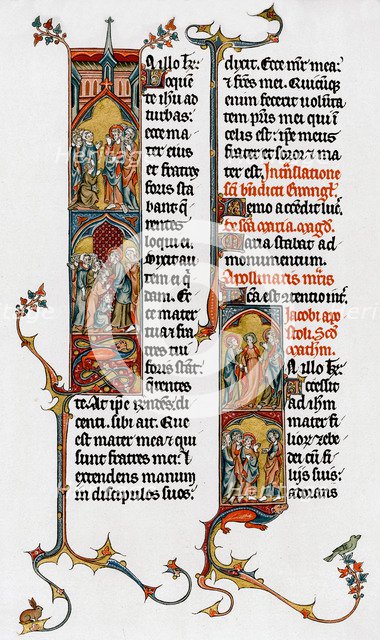 In illo tr̄.
Loquen
te ihū ad
turbas:
ecce ma
ter eius
et fratres
foris sta
bant q̄
rentes
loqui ei
Dixit au
tem ei q̄
dam. Ec
te mater
tua ⁊ fra
tres tui
foris stāt
q̄rentes
te. At ip̄e rn̄dēs di
centi. sibi ait. Que
est mater mea ⁊ qui
sunt fratres mei. ⁊
extendens manum
in discipulos suos.
dixit. Ecce mr̄ mea
⁊ fr̄es mei. Quicūq;
enim fecerit volūta
tem p̄ris mei qui ī
celis est: ip̄e meus
frater et soror ⁊ ma
ter est.
Nemo accēdit luc̄.
Maria stabat ad
monumentum.
Apollinaris mr̄is
Jacobi apo
stoli. Scd̄
math̄m.
In illo tr̄.
Accessit
ad ihm̄
mater fi
liorum zebe
dei cū fi
lijs suis:
adorans